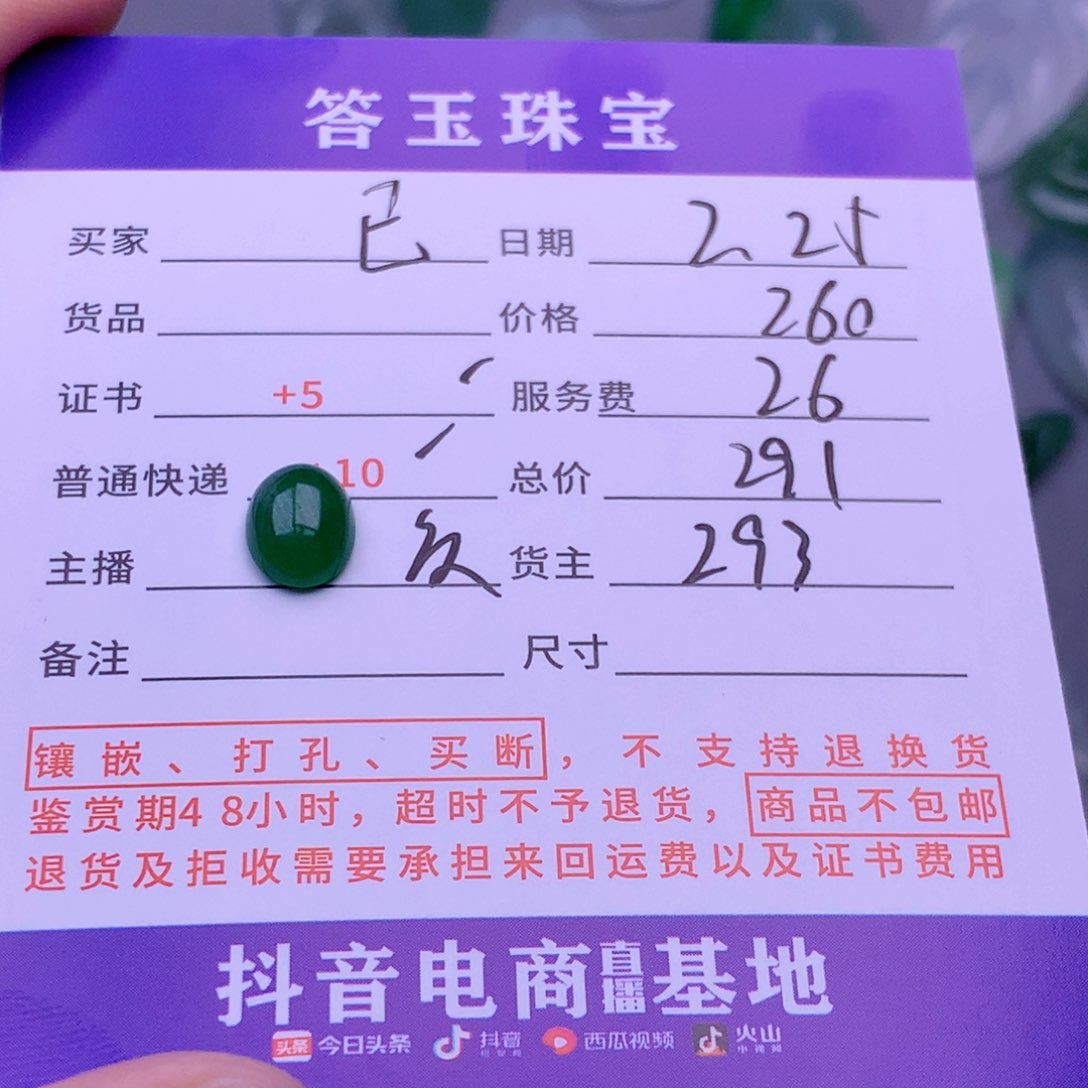 答玉珠宝
买家 已 日期 2.25
货品 价格 260
证书 +5 服务费 26
普通快递 +10 总价 291
主播 货主 293
备注 尺寸
镶嵌、打孔、买断，不支持退换货
鉴赏期48小时，超时不予退货，商品不包邮
退货及拒收需要承担来回运费以及证书费用
抖音电商直播基地
头条 今日头条 抖音 西瓜视频 火山